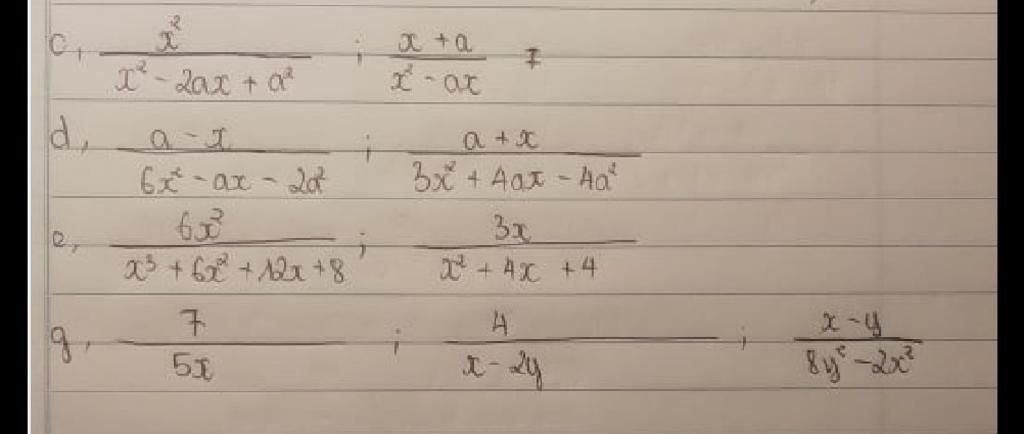 c, x² / (x² - 2ax + a²) ; (x + a) / (x² - ax)
d, (a - x) / (6x² - ax - 2a²) ; (a + x) / (3x² + 4ax - 4a²)
e, 6x² / (x³ + 6x² + 12x + 8) ; 3x / (x² + 4x + 4)
g, 7 / 5x ; 4 / (x - 2y) ; (x - y) / (8y² - 2x²)